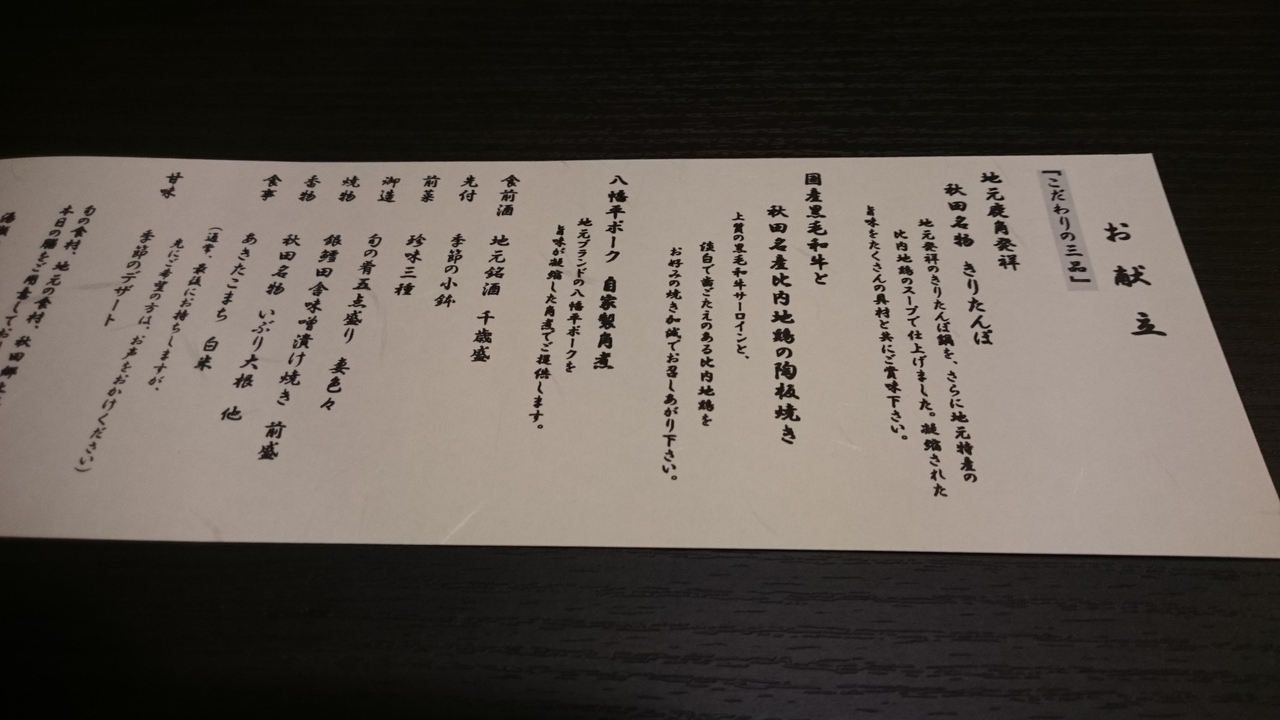 お献立
『こだわりの三品』
地元鹿角発祥
秋田名物 きりたんぽ
地元発祥のきりたんぽ鍋を、さらに地元特産の
比内地鶏のスープで仕上げました。凝縮された
旨味をたくさんの具材と共にご賞味下さい。
国産黒毛和牛と
秋田名産比内地鶏の陶板焼き
上質の黒毛和牛サーロインと、
淡白で歯ごたえのある比内地鶏を
お好みの焼き加減でお召しあがり下さい。
八幡平ポーク 自家製角煮
地元ブランドの八幡平ポークを
旨味が凝縮した角煮でご提供します。
食前酒 地元銘酒 千歳盛
先付 季節の小鉢
前菜 珍味三種
御造 旬の肴五点盛り 妻色々
焼物 銀鱈田舎味噌漬け焼き 前盛
香物 秋田名物 いぶり大根 他
食事 あきたこまち 白米
(通常、最後にお持ちしますが、
先にご希望の方は、お声をおかけください)
甘味 季節のデザート
旬の食材、地元の食材、秋田郷土
本日の膳をご用意して